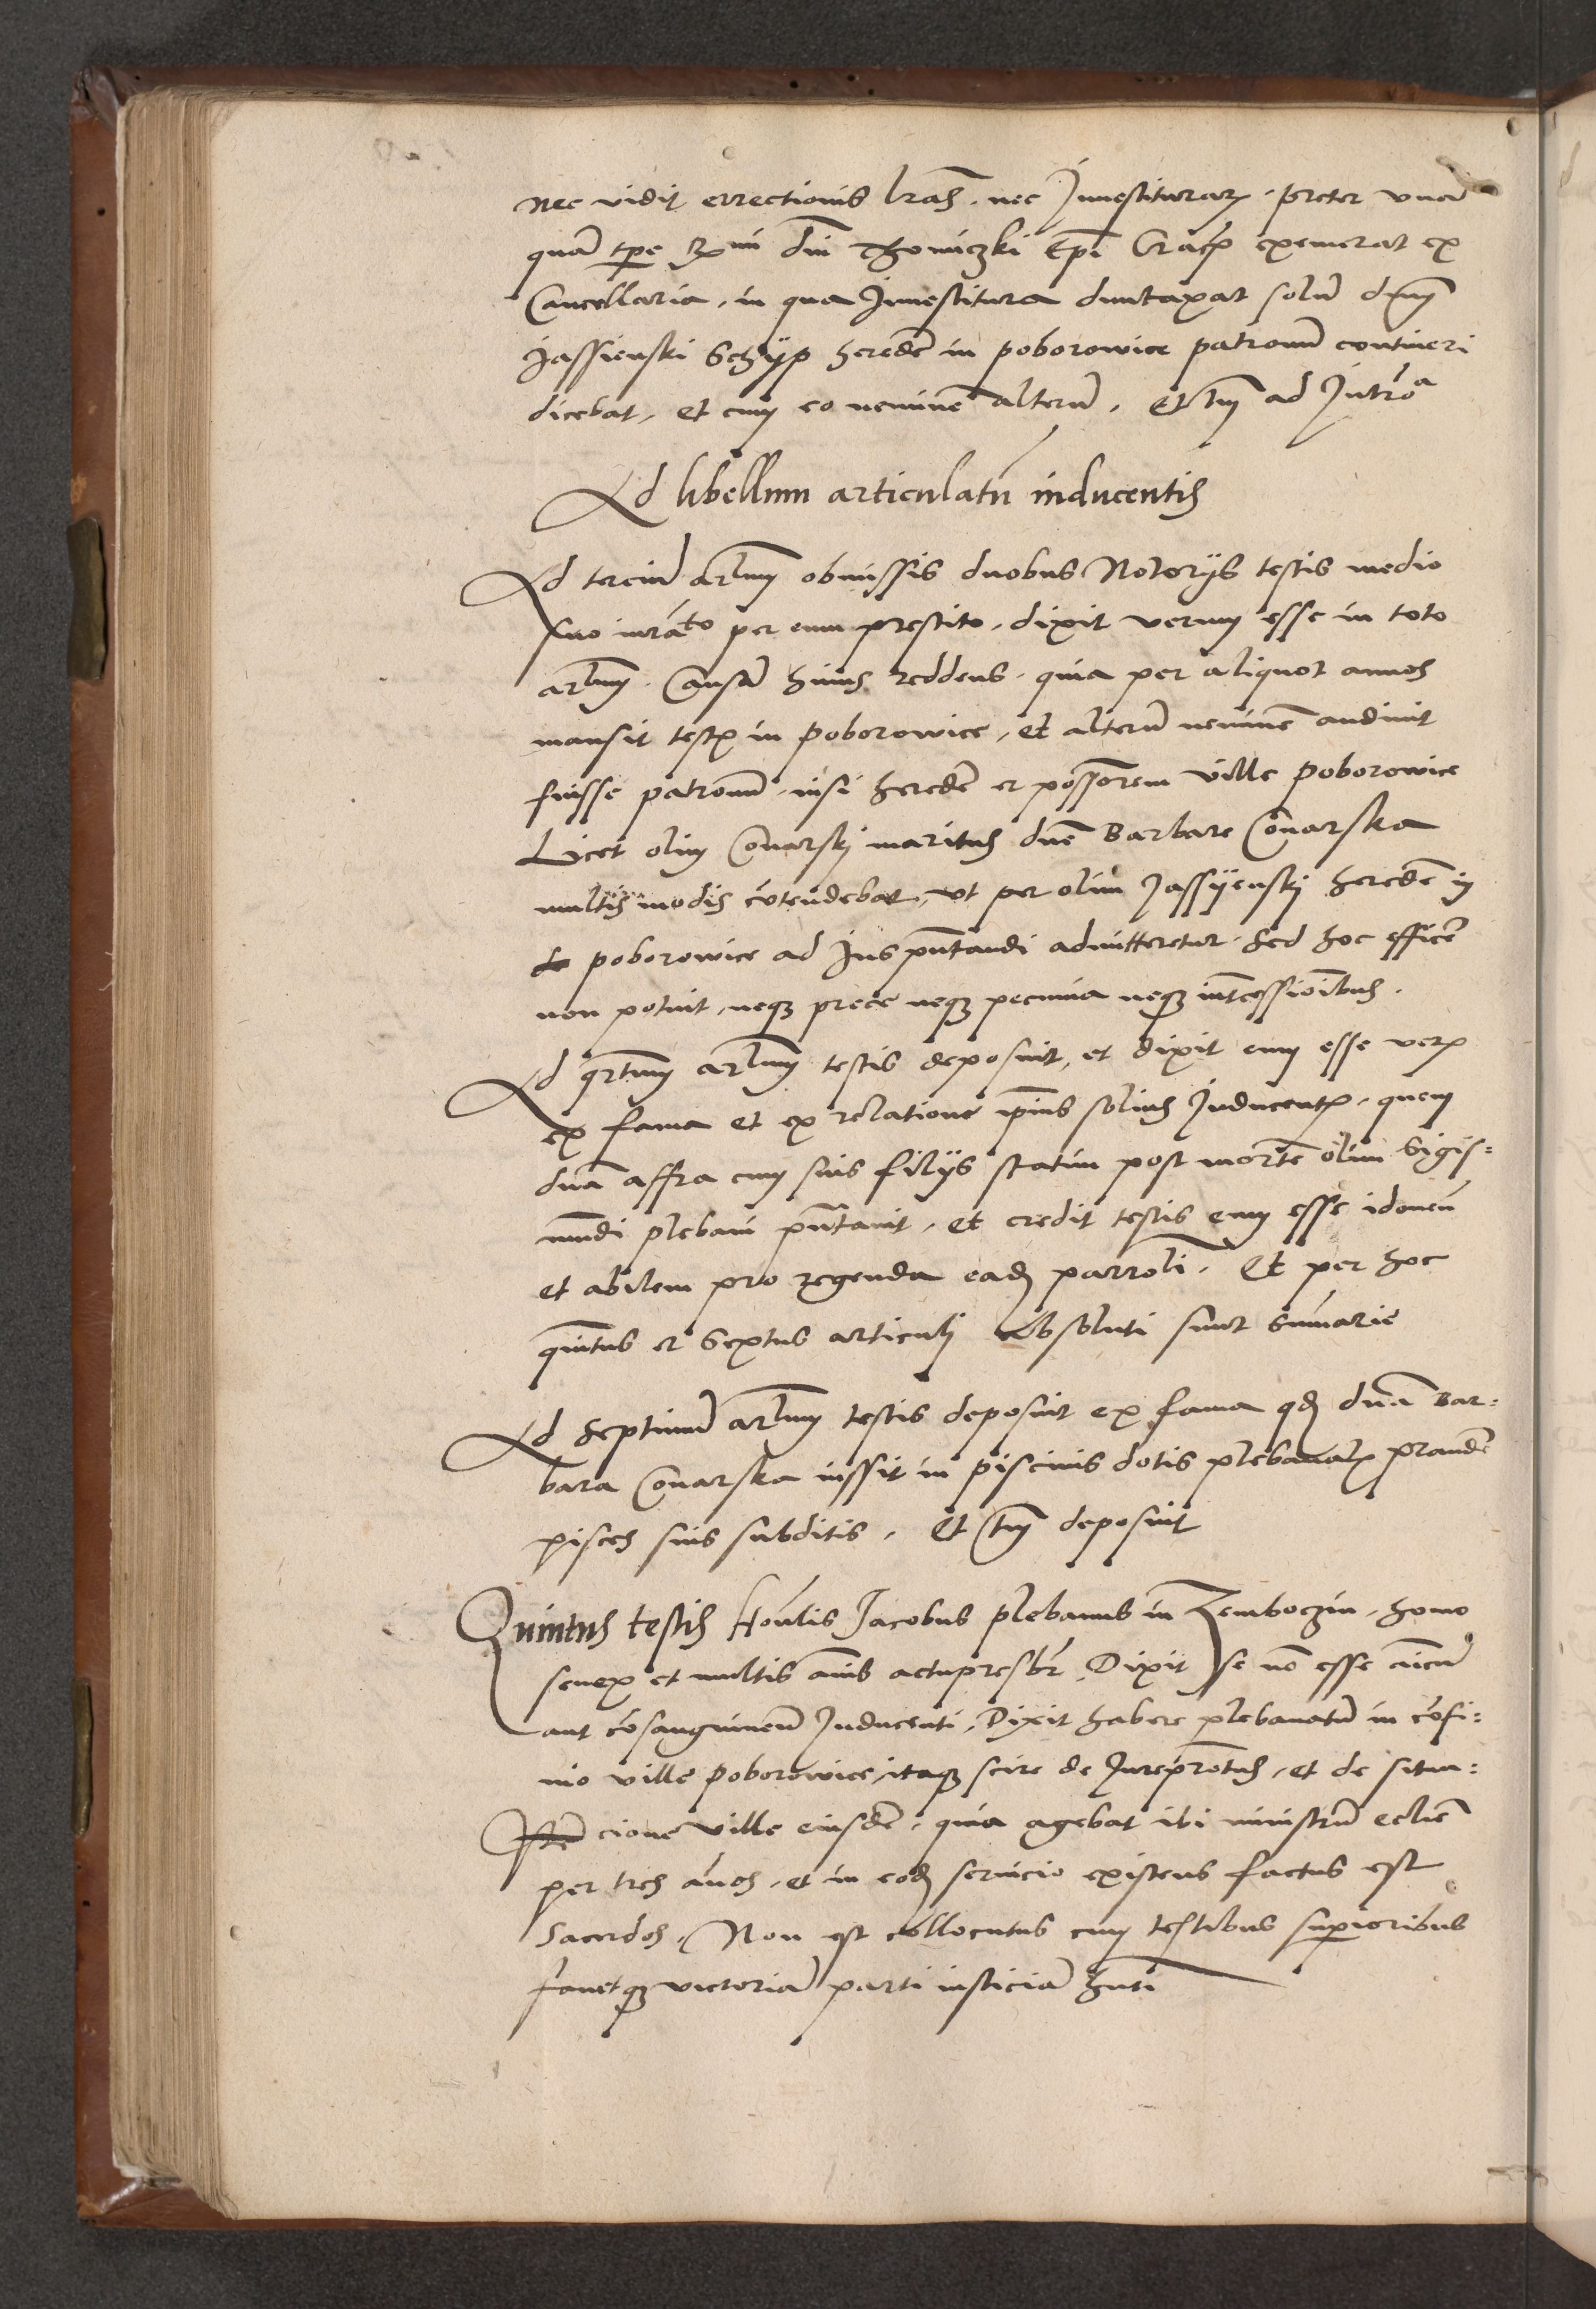 nec vidit errectionis lrās. nec Inuestiturar. preter vnā
quā tpe Rmi dni Thomiczki Epi Cracō exemerat ex
Cancellaria, in qua Inuestitura duntaxat solū dnum
Jassienski Schyp heredē in poborowice patronū contineri
dicebat, et cum eo neminē alterū. Et tm ad Intrōa
Ad libellum articulatū inducentis
Ad terciū arlum obmissis duobus Notorys testis medio
suo iurāto per eum prestito, dixit verum esse in toto
arlum. Causā huius reddens. quia per aliquot annos
mansit testis in poborowice, et alterū neminē audiuit
fuisse patronū, nisi heredē et possorem ville poborowice
Licet olim Conarski maritus dnē Barbare Conarska
multis modis cōtendebat, vt per olim Jassyenski heredē in
de poborowice ad Ius pntandi admitteretur. sed hoc efficē
non potuit, neq prece neq pecunia neq intcessiōibus.
Ad qrtum arlum testis deposuit, et dixit eum esse verum
ex fama et ex relatione ipius solius Inducentis, quem
dna affra cum suis filys statim post mortē olim Sigis=
mūdi plebani pntauit, et credit testis eum esse idoneū
et abilem pro regenda eadem parroli. Et per hoc
quintus et Sextus articuli Absoluti sunt sūmarie
Ad septimū arlum testis deposuit ex fama qd dna Bar=
bara Conarska iussit in piscinis dotis plebanalis prandē
pisces suis subditis. Et tm deposuit
Quintus testis Honlis Jacobus plebanus in Zemboczin, homo
senex et multis annis actu presbr. Dixit se nō esse amicū
aut cōsanguineū Inducenti. Dixit habere plebanatū in cōfi=
nio ville poborowice, itaq scire de Iurepronatus, et de situa=
cione ville eiusdē, quia agebat ibi ministrū eclie
per tres ānos, et in eodem seruicio existens factus est
Sacerdos. Non est collocutus cum testibus superioribus
fauetq victoriā parti iusticiā hnti